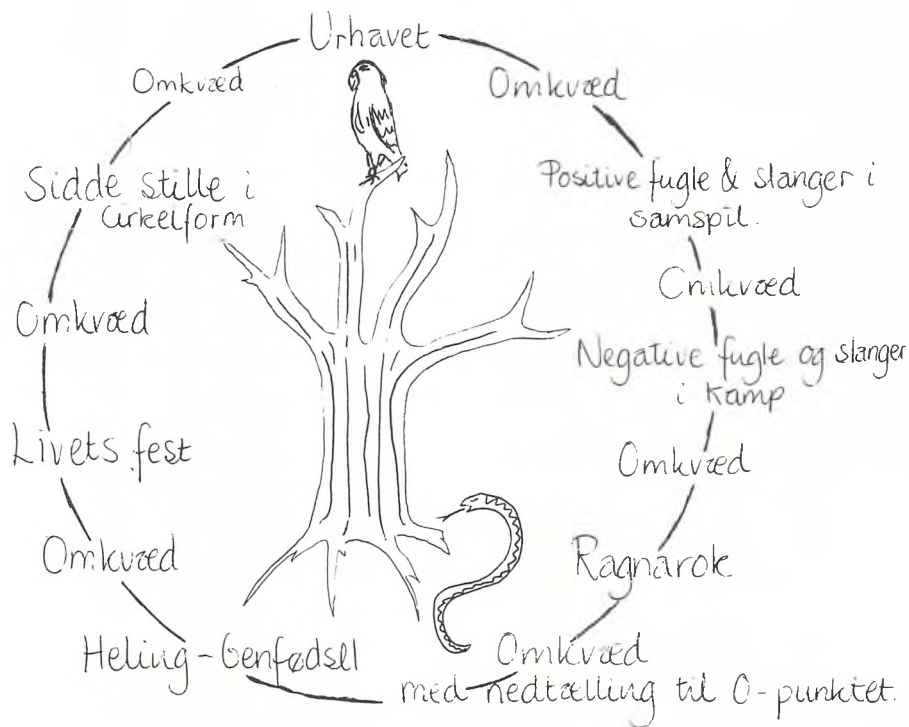 Urhavet
Omkvæd
Positive fugle & slanger i
samspil.
Omkvæd
Negative fugle og slanger
i kamp
Omkvæd
Ragnarok
Omkvæd
med nedtælling til 0-punktet.
Heling-Genfødsel
Omkvæd
Livets fest
Omkvæd
Sidde stille i
Cirkelform
Omkvæd